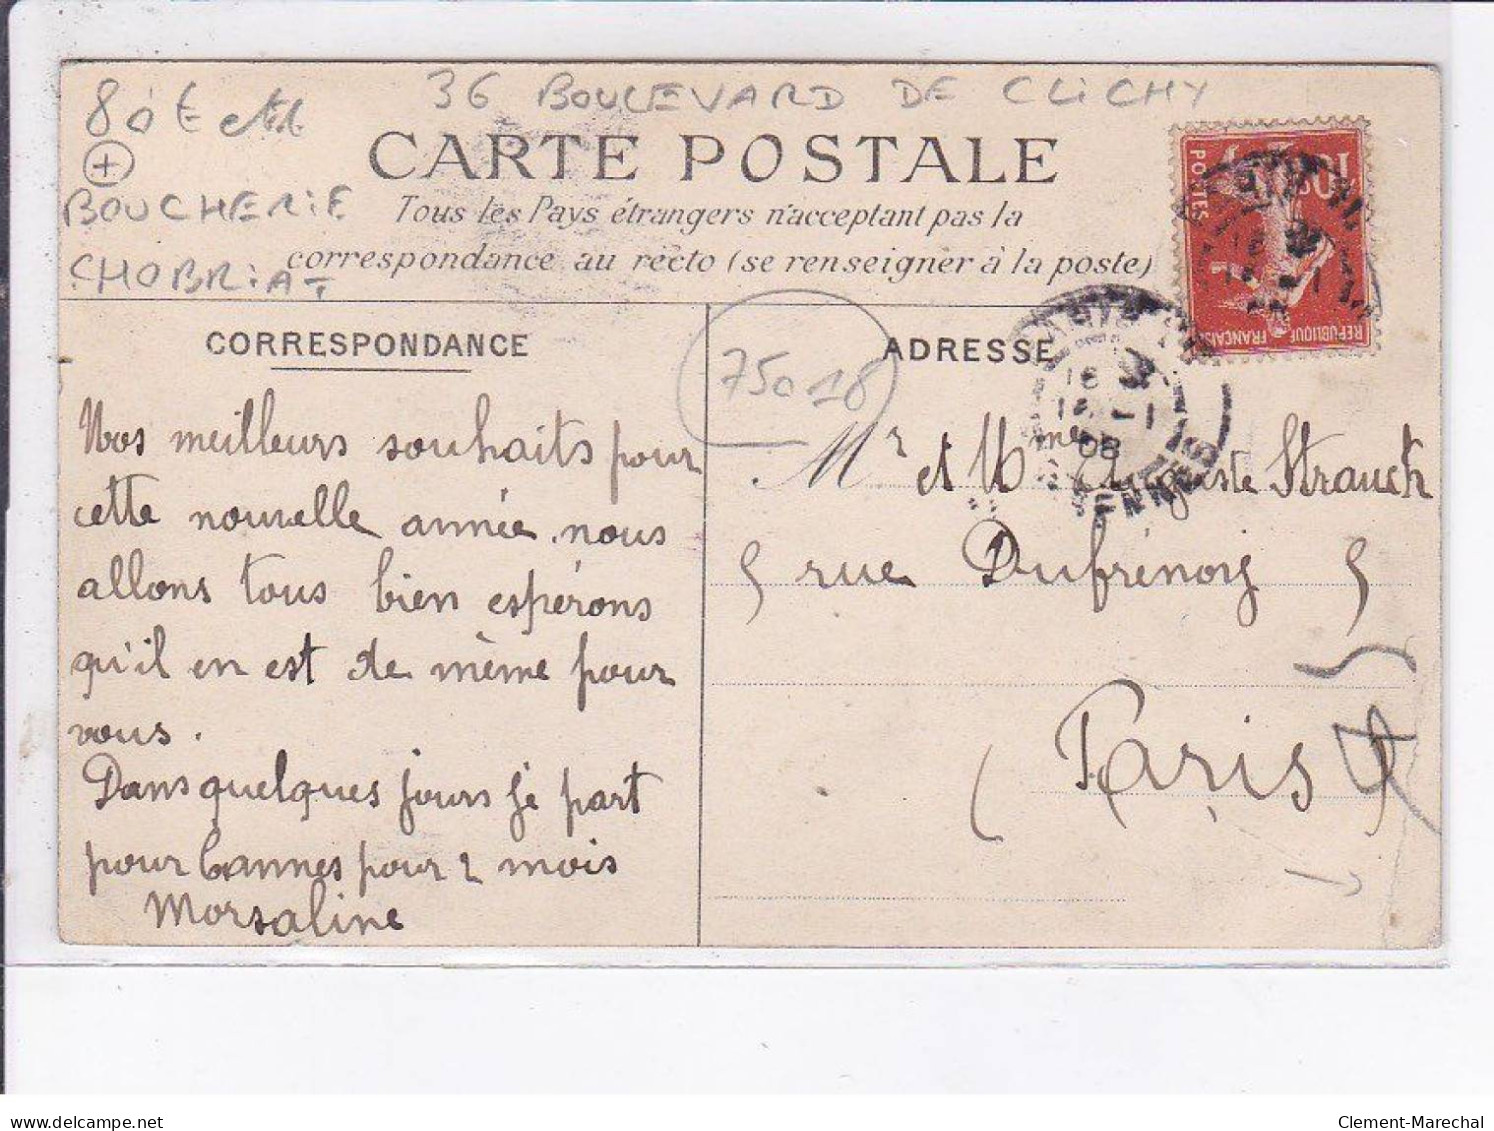 36 BOULEVARD DE CLICHY
80€
BOUCHERIE
CHOBRIAT
CARTE POSTALE
Tous les Pays étrangers n'acceptant pas la
correspondance au recto (se renseigner à la poste)
CORRESPONDANCE
Nos meilleurs souhaits pour
cette nouvelle année. nous
allons tous bien espérons
qu'il en est de même pour
vous.
Dans quelques jours je part
pour Cannes pour 2 mois
Morsaline
75018
ADRESSE
Mr et Mme Auguste Strauch
5 rue Dufrénoy 5
Paris
POSTES
10
REPUBLIQUE FRANÇAISE
PARIS
18
1
08
delcampe.net
Clement-Marechal